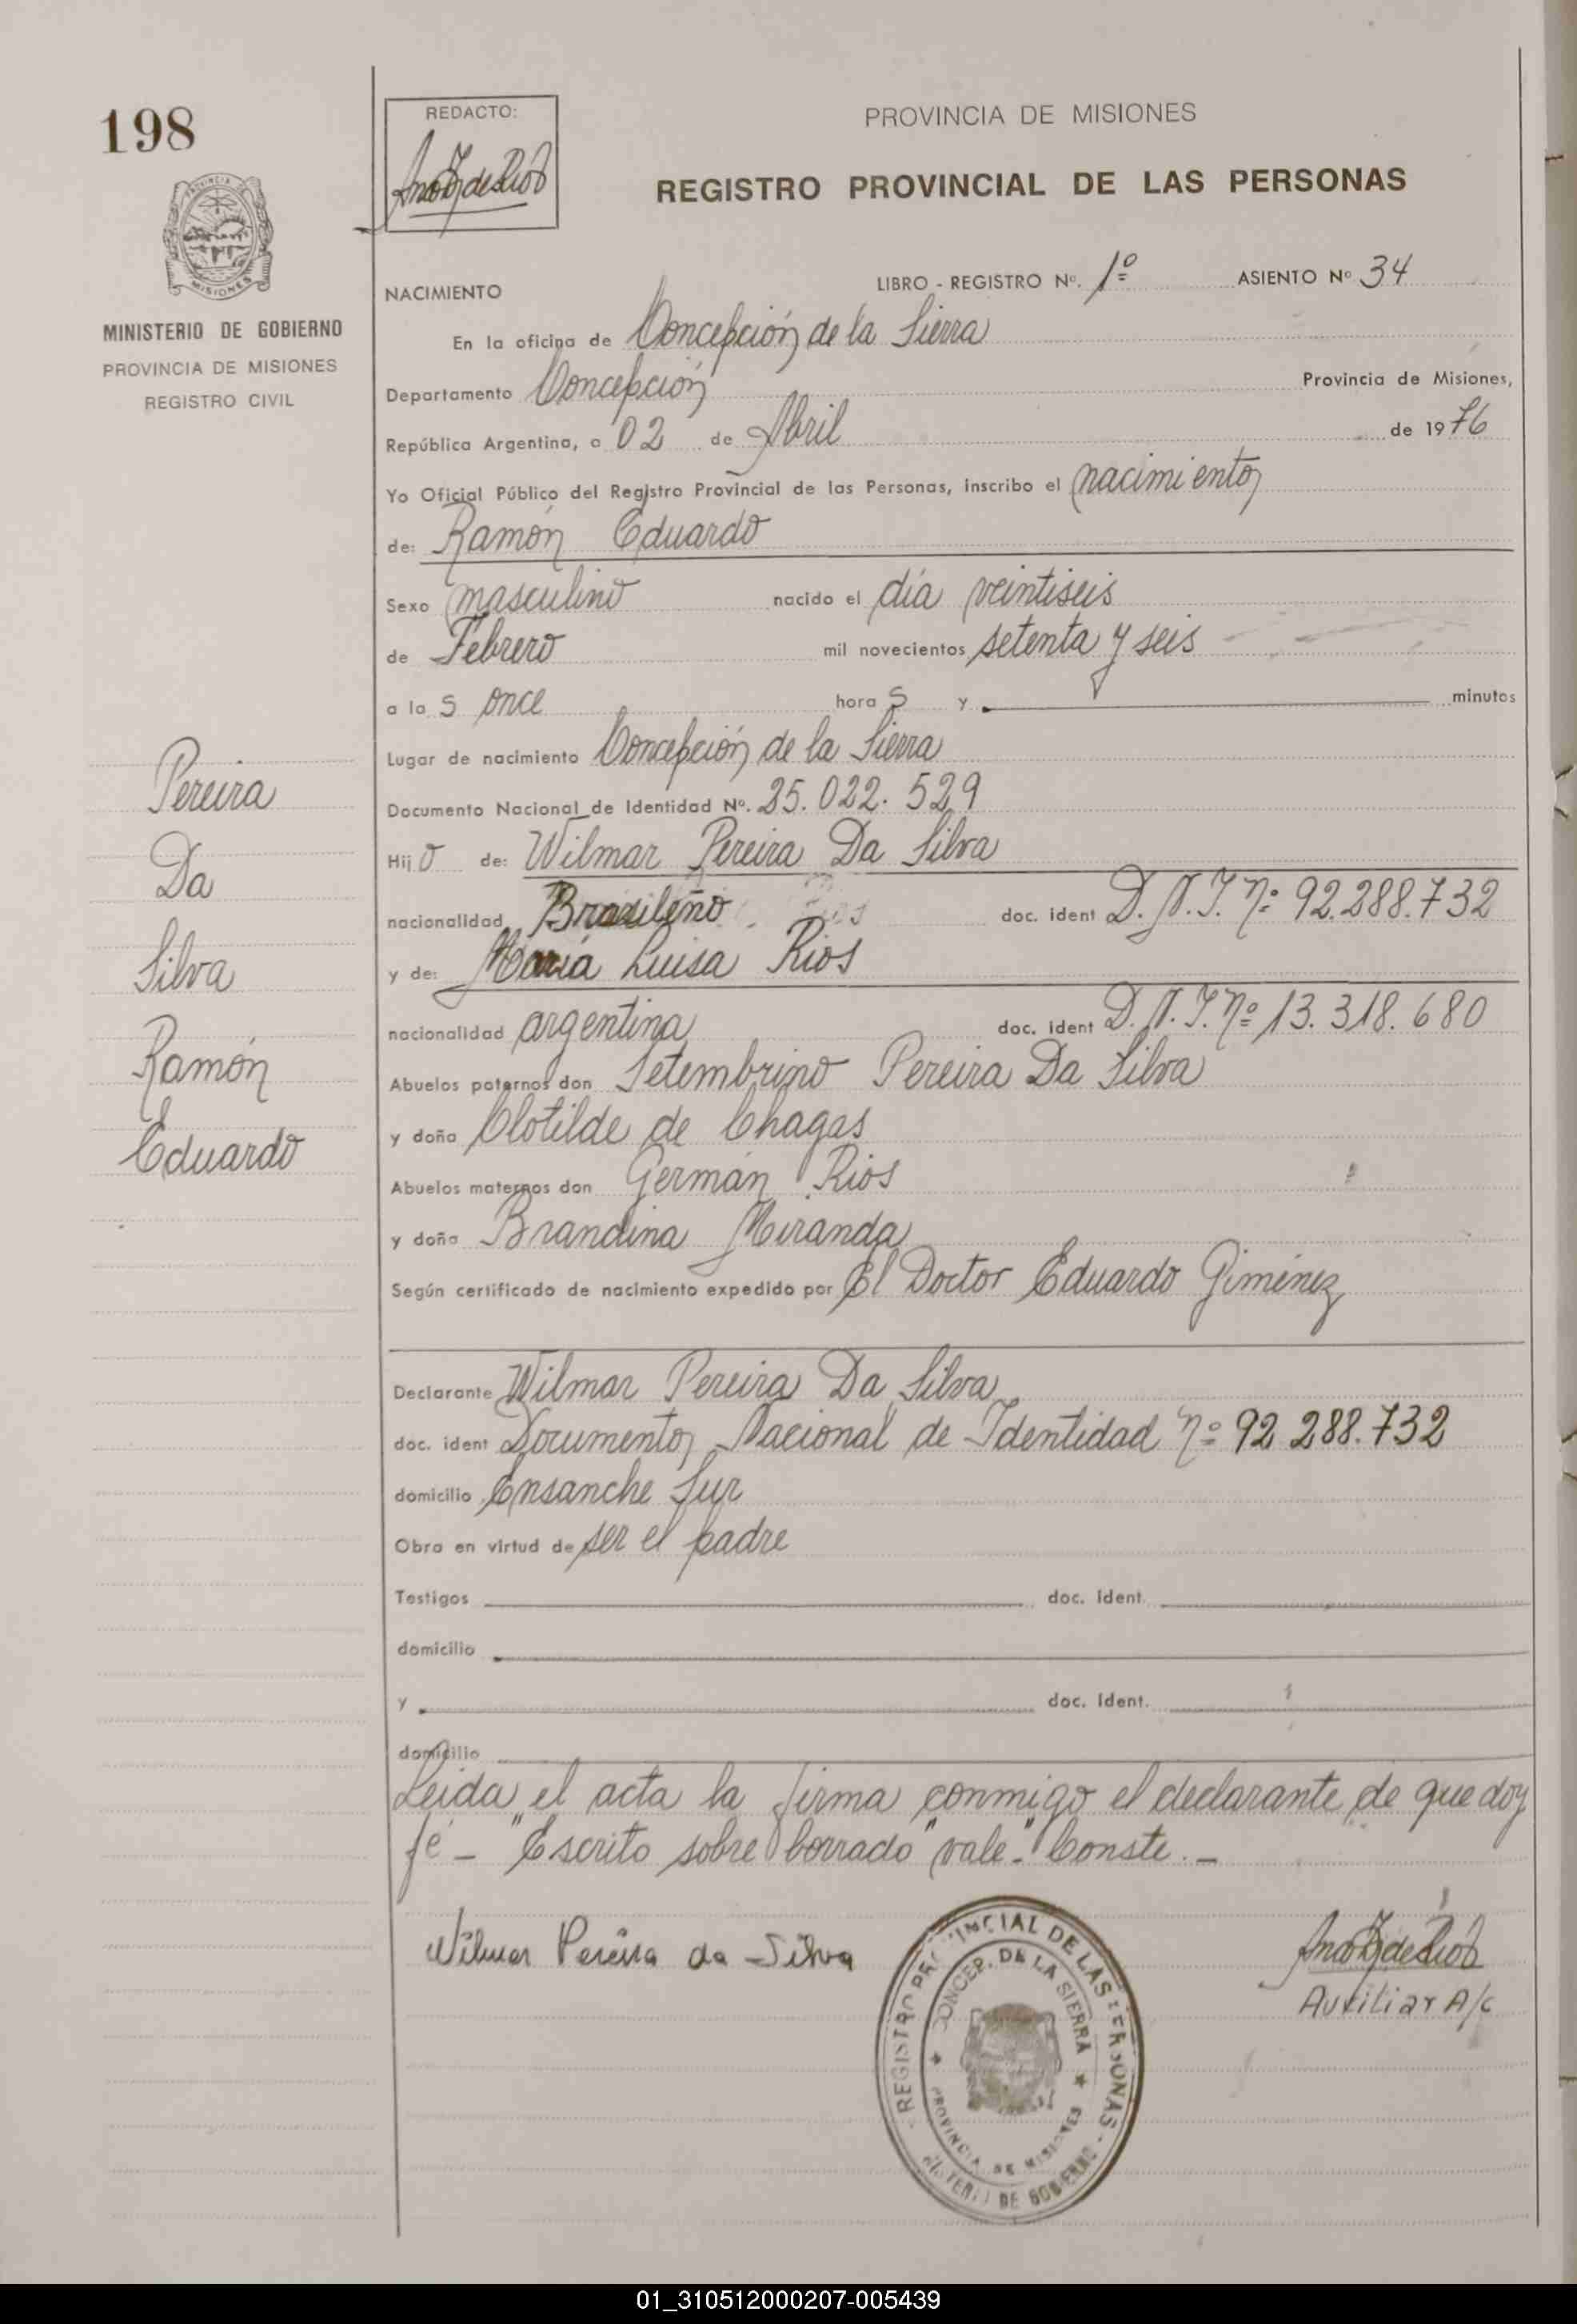 198
REDACTO:
PROVINCIA DE MISIONES
REGISTRO PROVINCIAL DE LAS PERSONAS
MISIONES
MINISTERIO DE GOBIERNO
PROVINCIA DE MISIONES
REGISTRO CIVIL
NACIMIENTO
LIBRO - REGISTRO Nº. 1º ASIENTO Nº 34
En la oficina de Concepción de la Sierra
Departamento Concepción Provincia de Misiones,
República Argentina, a 02 de Abril de 1976
Yo Oficial Público del Registro Provincial de las Personas, inscribo el nacimiento
de: Ramón Eduardo
Sexo masculino nacido el día veintiseis
de Febrero mil novecientos setenta y seis
a la s once hora s y minutos
Lugar de nacimiento Concepción de la Sierra
Documento Nacional de Identidad Nº. 25.022.529
Hijo de: Wilmar Pereira Da Silva
nacionalidad Brasileño doc. ident D.N.I. Nº 92.288.732
y de: María Luisa Rios
nacionalidad argentina doc. ident D.N.I. Nº 13.318.680
Abuelos paternos don Setembrino Pereira Da Silva
y doña Clotilde de Chagas
Abuelos maternos don Germán Rios
y doña Brandina Miranda
Según certificado de nacimiento expedido por El Doctor Eduardo Giménez
Declarante Wilmar Pereira Da Silva
doc. ident Documento Nacional de Identidad Nº 92 288.732
domicilio Ensanche Sur
Obra en virtud de ser el padre
Testigos doc. ident.
domicilio
y doc. ident.
domicilio
Leida el acta la firma conmigo el declarante de que doy
fé - "Escrito sobre borrado" vale". Conste. -
Pereira
Da
Silva
Ramón
Eduardo
Wilmar Pereira da Silva
Auxiliar A/c
REGISTRO PROVINCIAL DE LAS PERSONAS
CONCEP. DE LA SIERRA
PROVINCIA DE MISIONES
MINISTERIO DE GOBIERNO
01_310512000207-005439